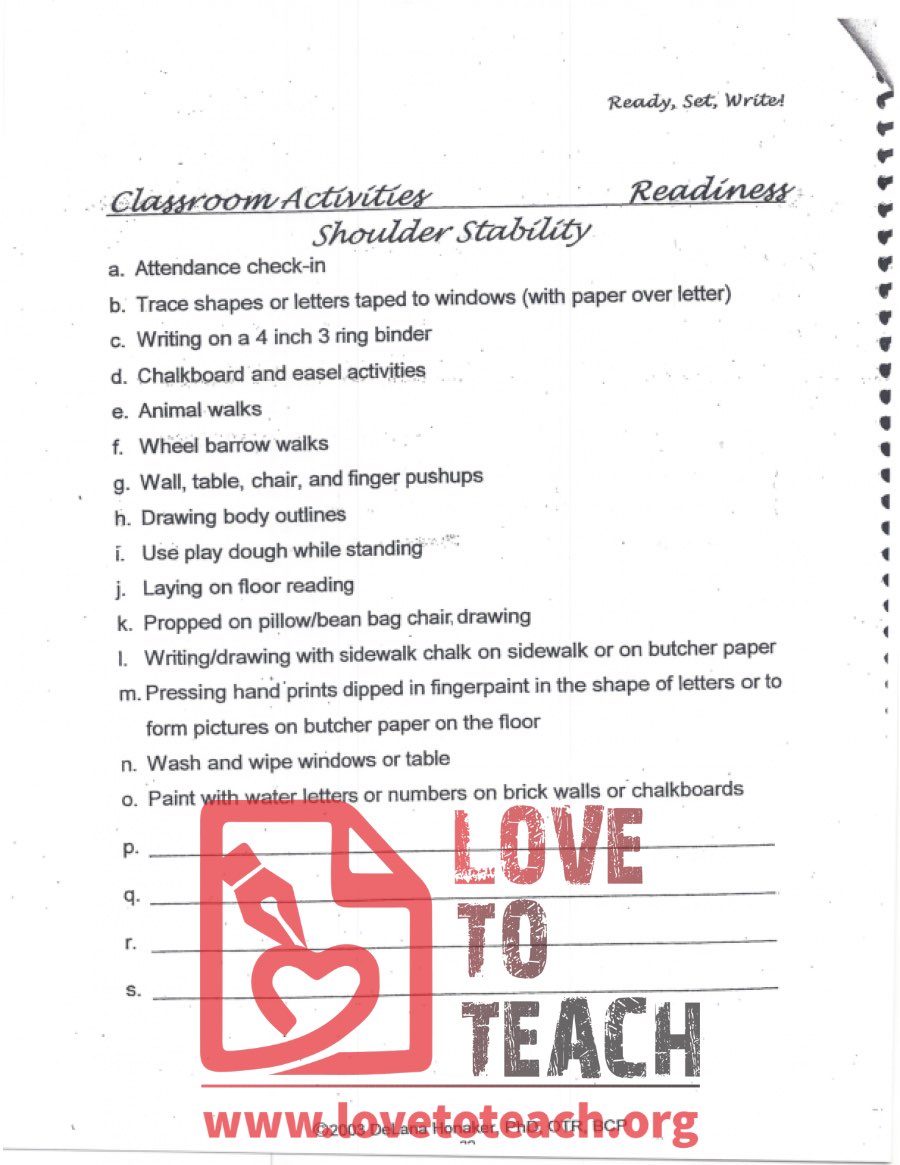 Ready, Set, Write!
Classroom Activities Readiness
Shoulder Stability
a. Attendance check-in
b. Trace shapes or letters taped to windows (with paper over letter)
c. Writing on a 4 inch 3 ring binder
d. Chalkboard and easel activities
e. Animal walks
f. Wheel barrow walks
g. Wall, table, chair, and finger pushups
h. Drawing body outlines
i. Use play dough while standing
j. Laying on floor reading
k. Propped on pillow/bean bag chair drawing
l. Writing/drawing with sidewalk chalk on sidewalk or on butcher paper
m. Pressing hand prints dipped in fingerpaint in the shape of letters or to
form pictures on butcher paper on the floor
n. Wash and wipe windows or table
o. Paint with water letters or numbers on brick walls or chalkboards
p.
q.
r.
s.
LOVE
TO
TEACH
www.lovetoteach.org
©2003 DeLana Honaker, PhD, OTR, BCP